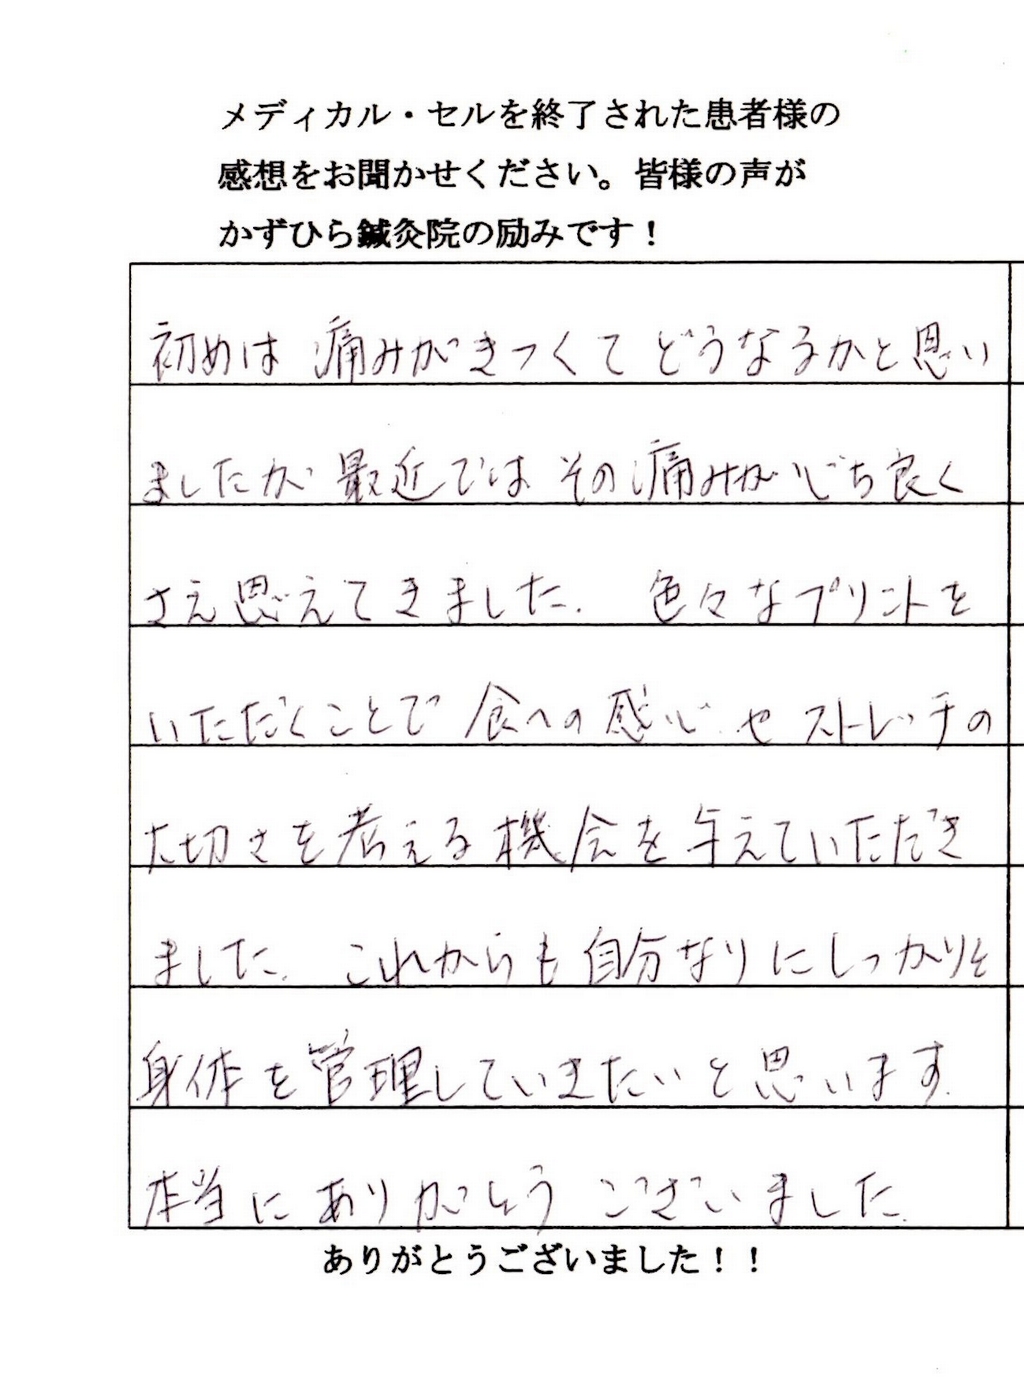 メディカル・セルを終了された患者様の
感想をお聞かせください。皆様の声が
かずひら鍼灸院の励みです！
初めは痛みがきつくてどうなるかと思い
ましたが最近ではその痛みが心ち良く
さえ思えてきました。色々なプリントを
いただくことで食への感心やストレッチの
大切さを考える機会を与えていただき
ました。これからも自分なりにしっかりと
身体を管理していきたいと思います。
本当にありがとうございました。
ありがとうございました！！